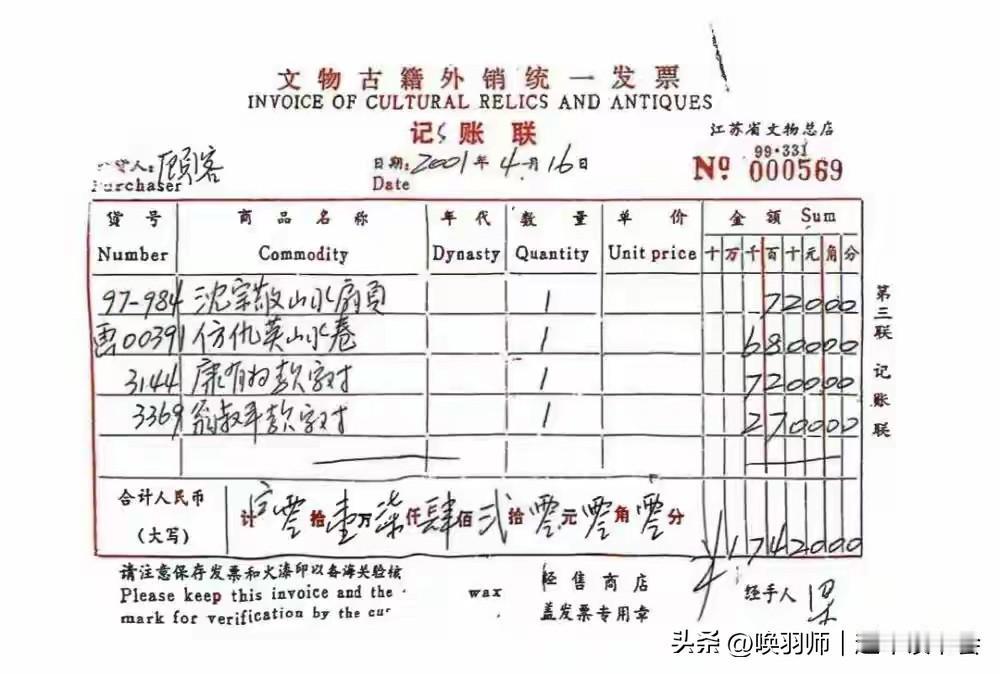 文物古籍外销统一发票
INVOICE OF CULTURAL RELICS AND ANTIQUES
记账联
江苏省文物总店
99·331
人: 顾客
Purchaser
日期: 2001年4月16日
Date
Nº 000569
货号 商品名称 年代 数量 单价 金额 Sum
Number Commodity Dynasty Quantity Unit price 十万千百十元角分
97-984 沈宗敬山水扇页 1 72000
00391 仿仇英山水卷 1 680000
3144 康有为款字对 1 720000
3369 翁叔平款字对 1 270000
第三联 记账联
合计人民币
(大写)
计 零拾壹万柒仟肆佰贰拾零元零角零分
¥1742000
请注意保存发票和火漆印以备海关验核
Please keep this invoice and the wax
mark for verification by the
经售商店
盖发票专用章
经手人
头条 @唤羽师